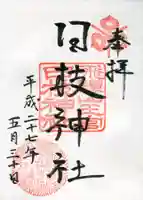 奉拝
日枝神社
平成二十七年
五月三十日